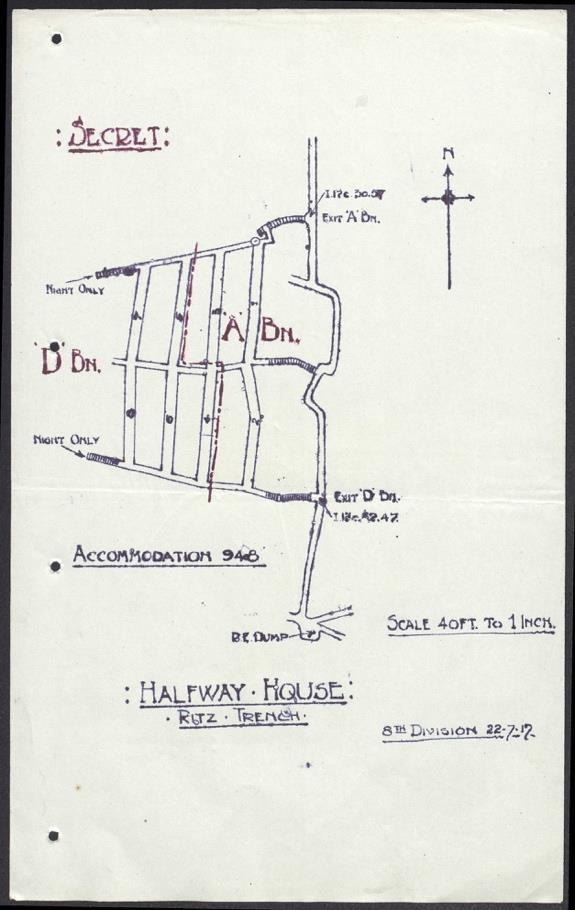 : SECRET :
N
I.17c. 30.57
EXIT 'A' BN.
NIGHT ONLY
'A' BN.
'D' BN.
NIGHT ONLY
EXIT 'D' BN.
ACCOMMODATION 948
SCALE 40FT. TO 1 INCH.
R.E. DUMP
: HALFWAY · HOUSE :
· RITZ · TRENCH ·
8TH DIVISION 22-7-17.